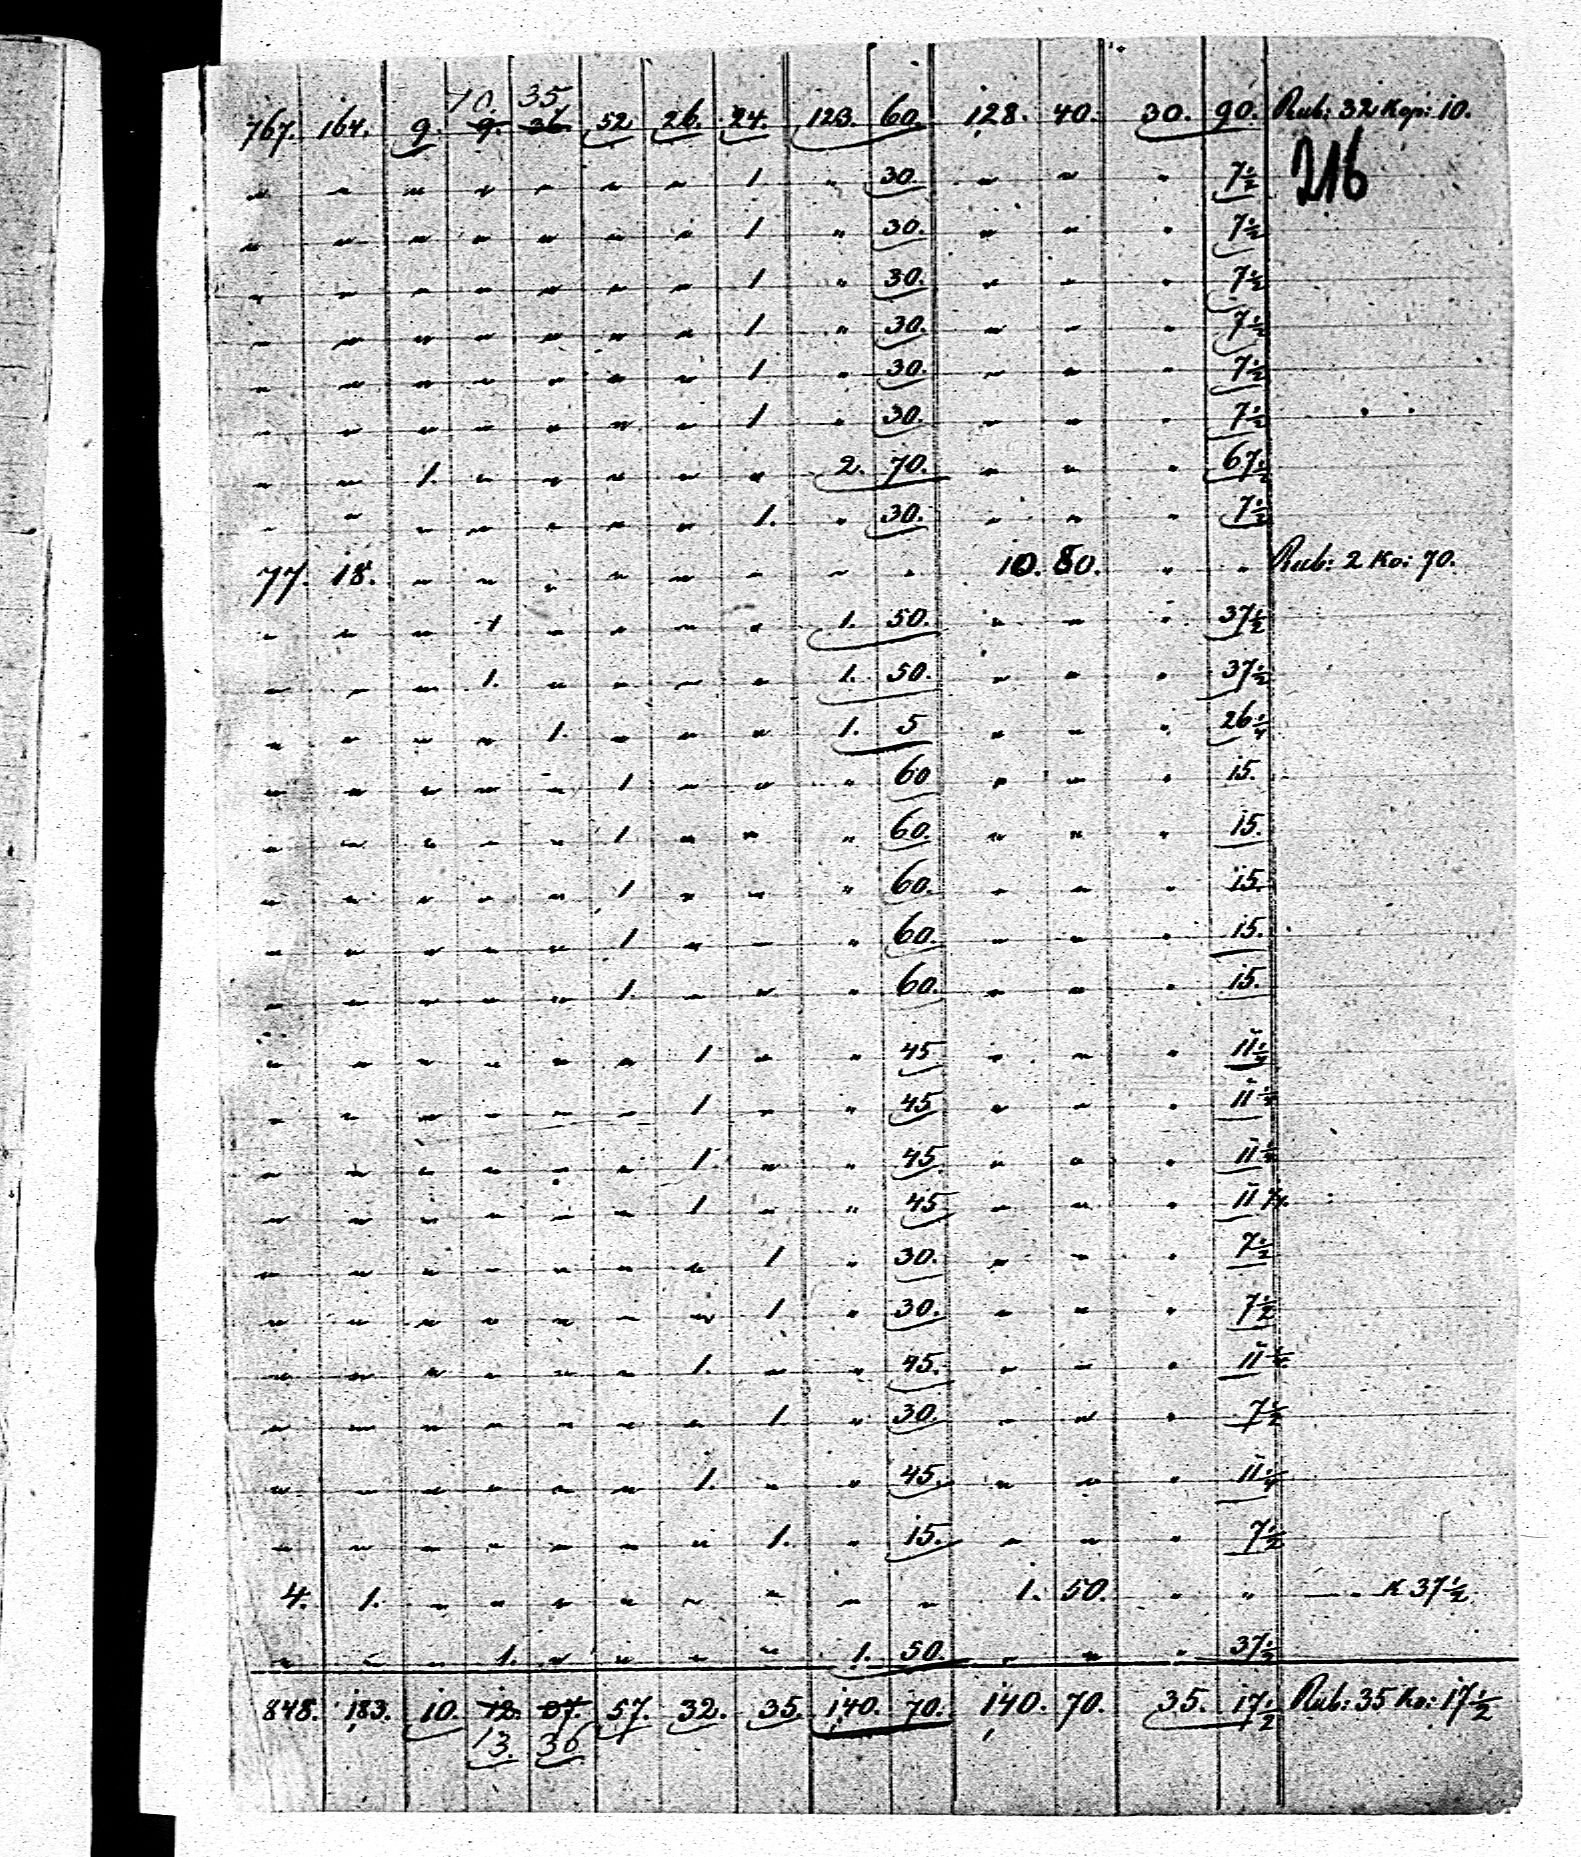 10. 35
767. 164. 9. 9. 36 52 26. 24. 123. 60. 128. 40. 30. 90. Rub: 32 Kop: 10.
216
" " " " " " " 1. " 30. " " " 7½
" " " " " " " 1 " 30. " " " 7½
" " " " " " " 1 " 30. " " " 7½
" " " " " " " 1 " 30. " " " 7½
" " " " " " " 1. " 30. " " " 7½
" " " " " " " 1 " 30. " " " 7½
" " 1. " " " " " 2. 70. " " " 67½
" " " " " " " 1. " 30. " " " 7½
77. 18. " " " " " " " " 10. 80. " " Rub: 2 Ko: 70.
" " " 1 " " " " 1. 50. " " " 37½
" " " 1. " " " " 1. 50. " " " 37½
" " " " 1. " " " 1. 5 " " " 26¼
" " " " " 1 " " " 60 " " " 15.
" " " " " 1 " " " 60. " " " 15.
" " " " " 1 " " " 60. " " " 15.
" " " " " 1 " " " 60. " " " 15.
" " " " " 1. " " " 60. " " " 15.
" " " " " " 1 " " 45 " " " 11¼
" " " " " " 1 " " 45 " " " 11¼
" " " " " " 1. " " 45. " " " 11¼
" " " " " " 1 " " 45 " " " 11¼.
" " " " " " " 1 " 30. " " " 7½
" " " " " " " 1 " 30. " " " 7½
" " " " " " 1. " " 45. " " " 11¼
" " " " " " " 1. " 30. " " " 7½
" " " " " " 1. " " 45. " " " 11¼
" " " " " " " 1. 15. " " " 7½
4. 1. " " " " " " " " 1. 50. " " — " K 37½
" " " 1. " " " " 1. 50. " " " 37½
848. 183. 10. 12. 37. 57. 32. 35. 140. 70. 140. 70. 35. 17½ Rub: 35 Ko: 17½
13. 36